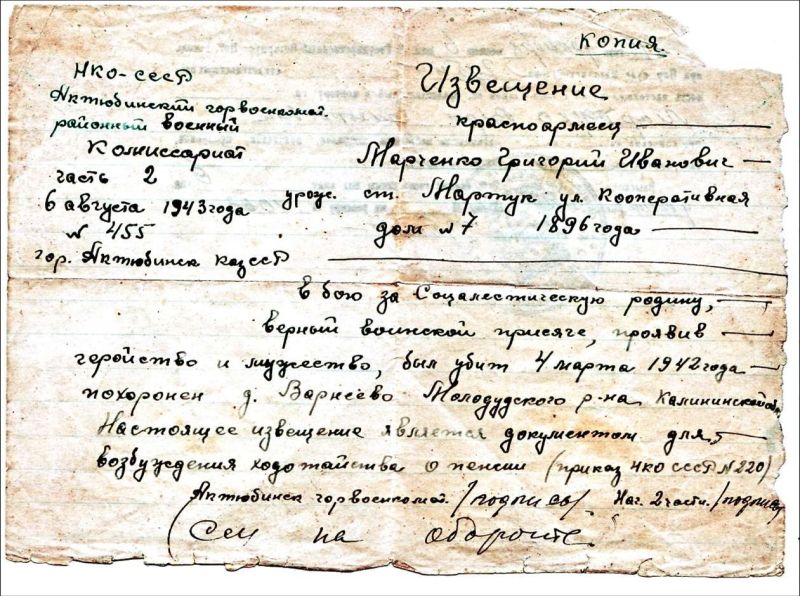 Копия.
НКО-СССР
Актюбинский горвоенкомат.
районный военный
Комиссариат
часть 2
6 августа 1943 года
№ 455
гор. Актюбинск КазССР
Извещение
красноармеец
Марченко Григорий Иванович
урож. ст. Мартук ул. Кооперативная
дом №7 1896 года
в бою за Соцалестическую родину,
верный воинской присяге, проявив
геройство и мужество, был убит 4 марта 1942 года
похоронен д. Варнеево Молодудского р-на Калининской обл.
Настоящее извещение является документом для
возбуждения ходотайства о пенсии (приказ НКО СССР №220)
Актюбинск горвоенкомат. /подпись/ Нач. 2 части. /подпись
(См на обороте.